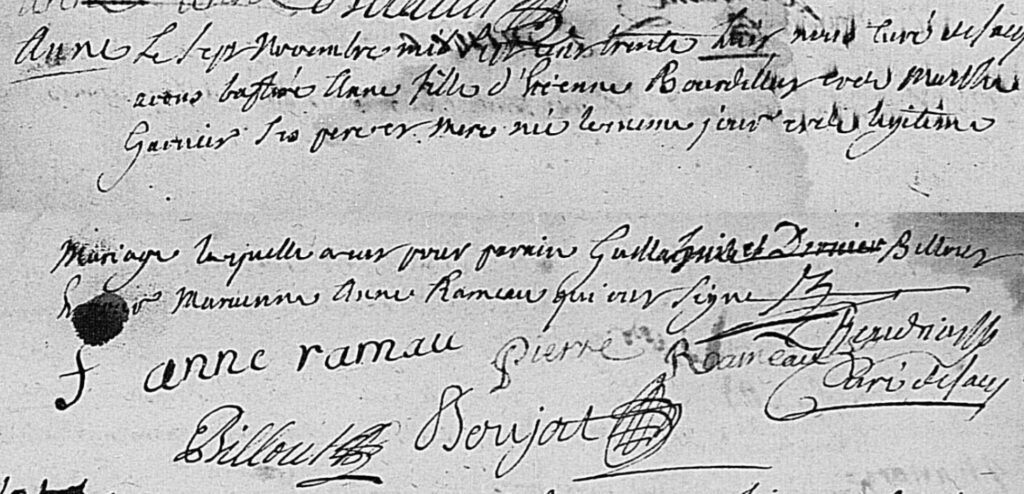 Anne Le sept Novembre mil sept cent trente trois nous curé de sacy
avons baptisé Anne fille d'Etienne Bourdillat et de Marthe
Garnier ses pere et mere née le mesme jour et de legitime
Mariage laquelle a eu pour parain Billout
Marienne Anne Rameau qui ont signe
f anne ramau pierre Rameau
curé de sacy
Billout Boujat